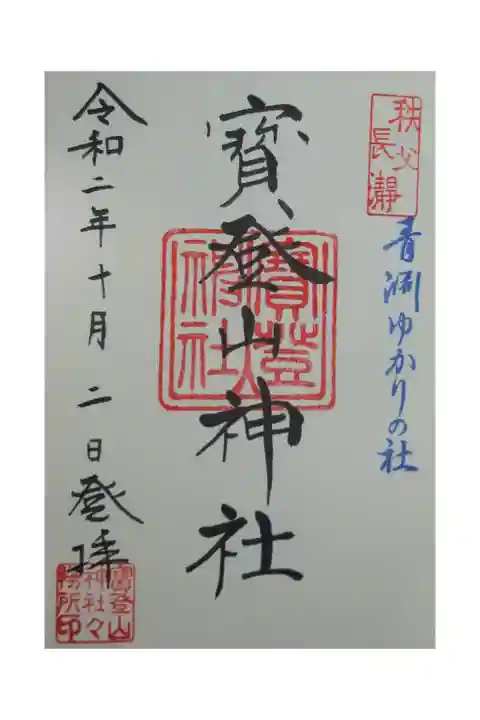 秩父
長瀞
青渊ゆかりの社
寳登山神社
寳登
山
神社
令和二年十月二日登拝
寳登山
神社々
務所印